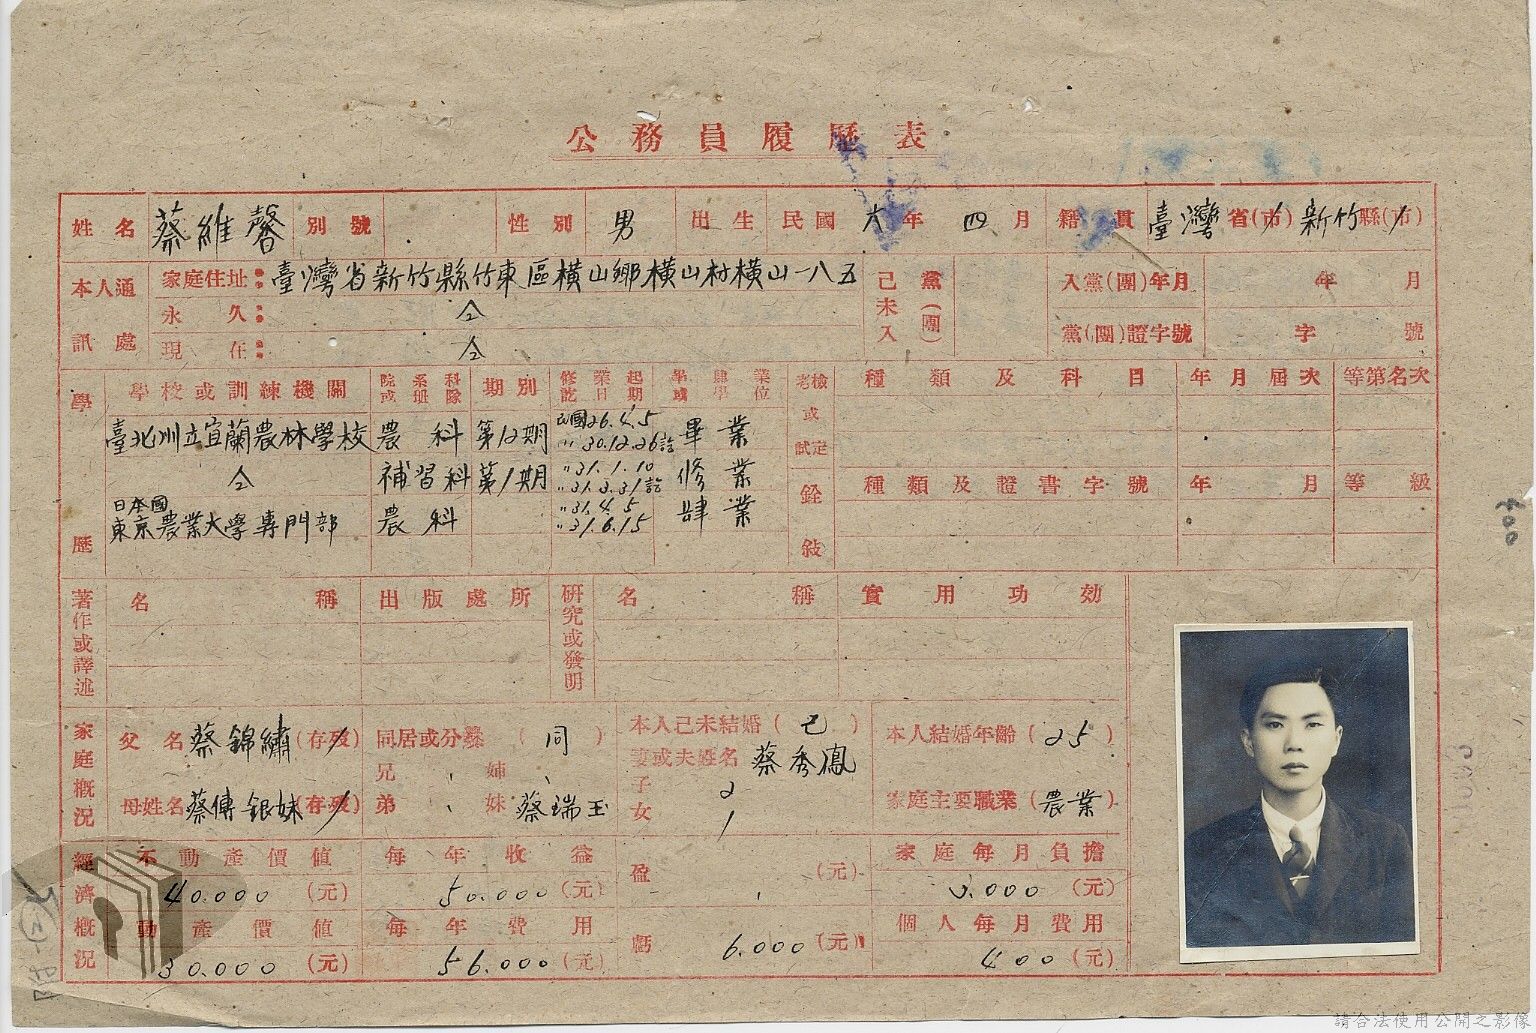 公務員履歷表
姓名 蔡維馨 別號 性別 男 出生 民國 六年 四月 籍貫 臺灣省(市) 新竹縣(市)
本人通訊處 家庭住址：臺灣省新竹縣竹東區橫山鄉橫山村橫山一八五
永久：仝
現在：仝
已未入黨(團) 入黨(團)年月 年 月
黨(團)證字號 字 號
學歷 學校或訓練機關 院系科或班隊 期別 修業起訖日期 畢肄業或學位
臺北州立宜蘭農林學校 農科 第12期 民國26.4.5 〃30.12.26訖 畢業
仝 補習科 第1期 〃31.1.10 〃31.3.31訖 修業
日本國
東京農業大學專門部 農科 〃31.4.5 〃31.6.15 肄業
考檢或試定 種類及科目 年月屆次 等第名次
銓敍 種類及證書字號 年 月 等級
著作或譯述 名稱 出版處所
研究或發明 名稱 實用功効
家庭概況 父名 蔡錦繡(存歿) 同居或分爨(同) 本人已未結婚(已) 本人結婚年齡(25)
兄 姉 妻或夫姓名 蔡秀鳳
母姓名 蔡傳銀妹(存歿) 弟 妹 蔡瑞玉 子 2 女 1 家庭主要職業(農業)
經濟概況 不動產價值 40.000(元) 每年收益 50.000(元) 盈 (元) 家庭每月負擔 (元)
動產價值 30.000(元) 每年費用 56.000(元) 虧 6.000(元) 個人每月費用 400(元)
400
請合法使用公開之影像